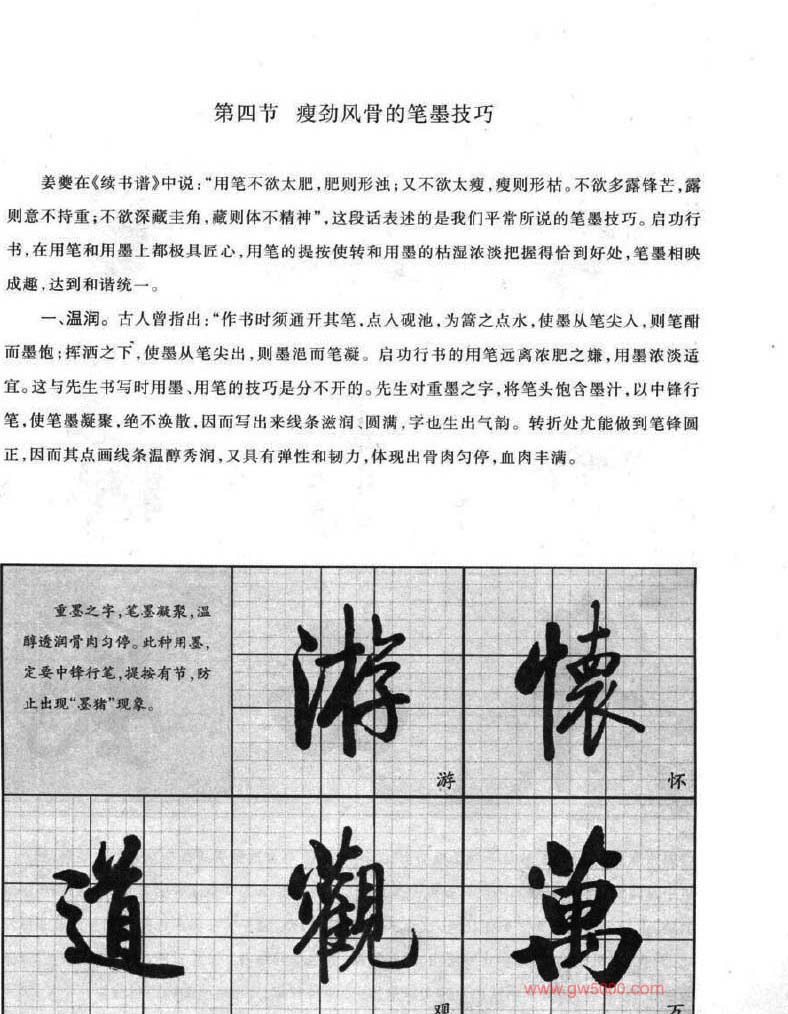 第四节 瘦劲风骨的笔墨技巧
姜夔在《续书谱》中说:“用笔不欲太肥,肥则形浊;又不欲太瘦,瘦则形枯。不欲多露锋芒,露
则意不持重;不欲深藏圭角,藏则体不精神”,这段话表述的是我们平常所说的笔墨技巧。启功行
书,在用笔和用墨上都极具匠心,用笔的提按使转和用墨的枯湿浓淡把握得恰到好处,笔墨相映
成趣,达到和谐统一。
一、温润。古人曾指出:“作书时须通开其笔,点入砚池,为篙之点水,使墨从笔尖入,则笔酣
而墨饱;挥洒之下,使墨从笔尖出,则墨浥而笔凝。启功行书的用笔远离浓肥之嫌,用墨浓淡适
宜。这与先生书写时用墨、用笔的技巧是分不开的。先生对重墨之字,将笔头饱含墨汁,以中锋行
笔,使笔墨凝聚,绝不涣散,因而写出来线条滋润、圆满,字也生出气韵。转折处尤能做到笔锋圆
正,因而其点画线条温醇秀润,又具有弹性和韧力,体现出骨肉匀停,血肉丰满。
重墨之字,笔墨凝聚,温
醇透润骨肉匀停。此种用墨,
定要中锋行笔,提按有节,防
止出现“墨猪”现象。
游
游
懷
怀
道
觀
观
萬
万
www.gw5000.com